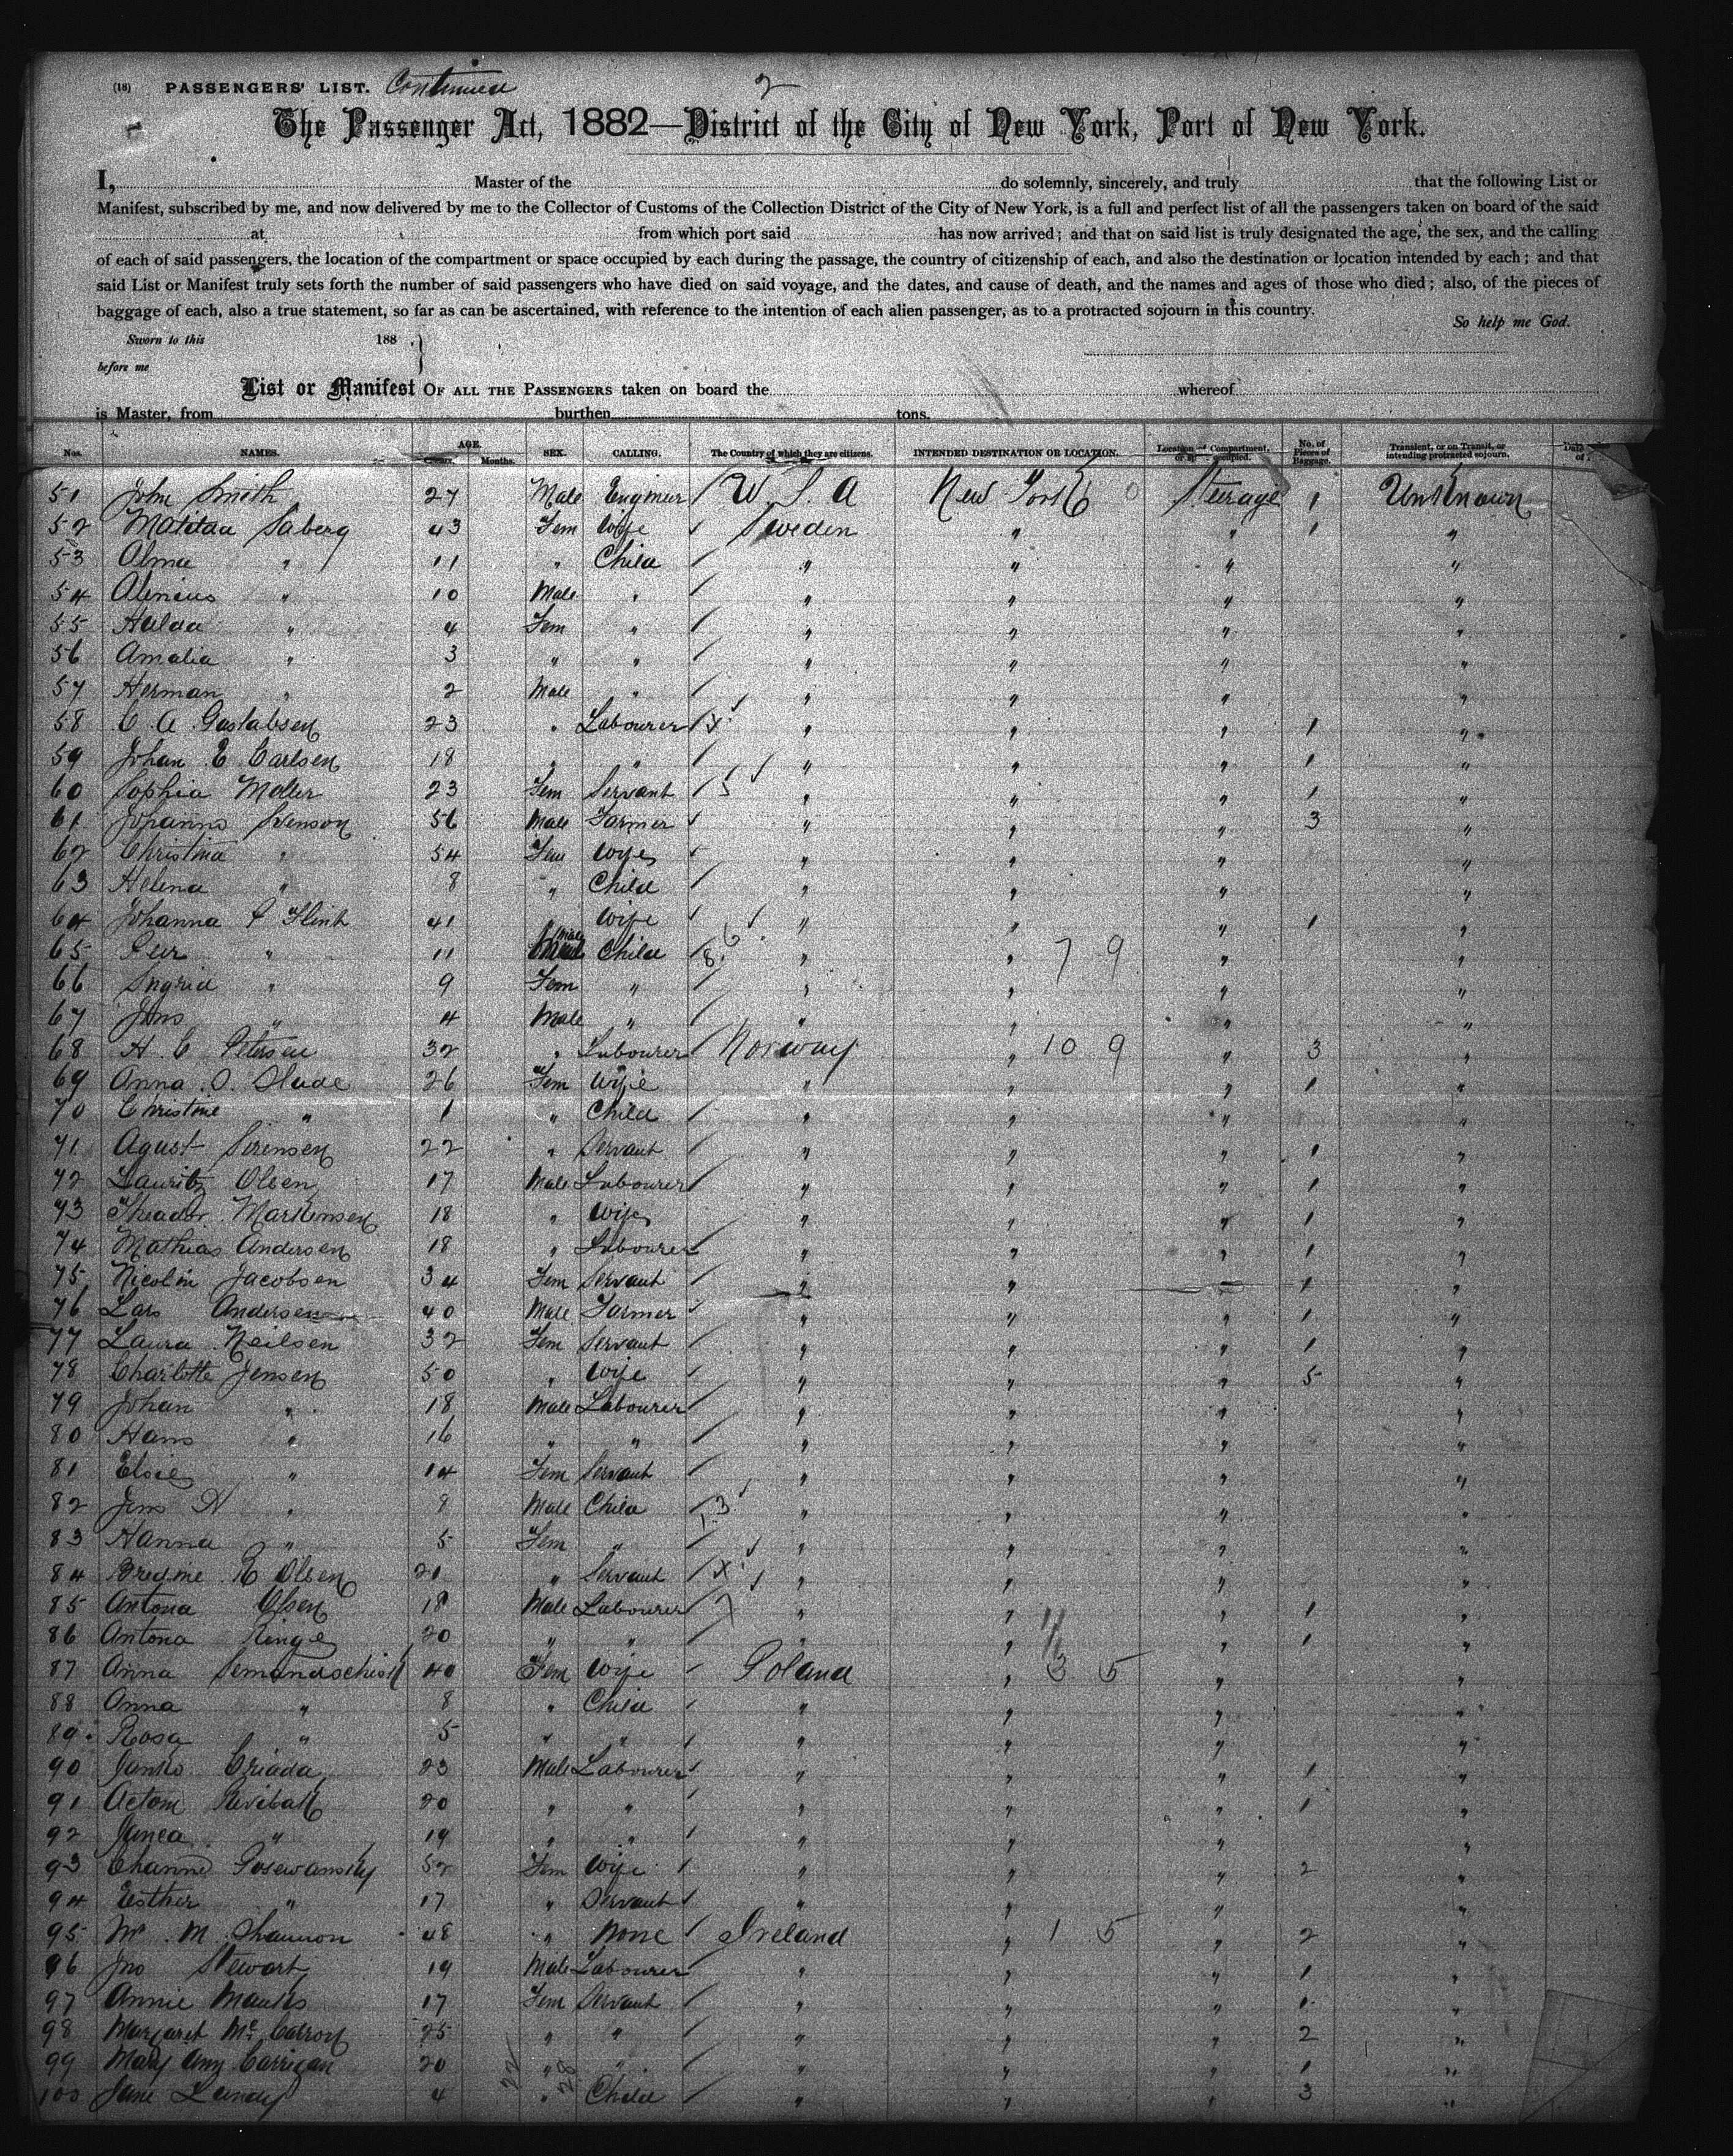 (18) PASSENGERS' LIST. Continued 2
The Passenger Act, 1882—District of the City of New York, Port of New York.
I, Master of the do solemnly, sincerely, and truly that the following List or
Manifest, subscribed by me, and now delivered by me to the Collector of Customs of the Collection District of the City of New York, is a full and perfect list of all the passengers taken on board of the said
at from which port said has now arrived; and that on said list is truly designated the age, the sex, and the calling
of each of said passengers, the location of the compartment or space occupied by each during the passage, the country of citizenship of each, and also the destination or location intended by each; and that
said List or Manifest truly sets forth the number of said passengers who have died on said voyage, and the dates, and cause of death, and the names and ages of those who died; also, of the pieces of
baggage of each, also a true statement, so far as can be ascertained, with reference to the intention of each alien passenger, as to a protracted sojourn in this country.
So help me God.
Sworn to this 188
before me
List or Manifest OF ALL THE PASSENGERS taken on board the whereof
is Master, from burthen tons.
Nos. NAMES. AGE. Years. Months. SEX. CALLING. The Country of which they are citizens. INTENDED DESTINATION OR LOCATION. Location of Compartment, or space occupied. No. of Pieces of Baggage. Transient, or in Transit, or intending protracted sojourn. Date
51 John Smith 27 Male Engineer U. S. A New York Steerage 1 Unknown
52 Matilda Saberg 43 Fem Wife Sweden " " 1 "
53 Alma " 11 " Child " " " "
54 " 10 Male " " " " "
55 Hulda " 4 Fem " " " " "
56 Amalia " 3 " " " " " "
57 Herman " 2 Male " " " " "
58 C. A. Gustafsen 23 " Labourer " " " 1 "
59 Johan E Carlsen 18 " " " " " 1 "
60 Sophia Moller 23 Fem Servant 5 " " " 1 "
61 Johanns Svenson 56 Male Farmer " " " 3 "
62 Christina " 54 Fem Wife " " " "
63 Helena " 8 " Child " " " "
64 Johanna Flink 41 Wife " " " 1 "
65 Peer " 11 Male Child " " 7 9 " "
66 Ingrid " 9 Fem " " " " "
67 Jens " 4 Male " " " " "
68 H. C Petersen 32 " Labourer Norway " 10 9 " 3 "
69 Anna O. Slude 26 Fem Wife " " " 1 "
70 Christine " 1 " Child " " " "
71 Agust Sorensen 22 " Servant " " " 1 "
72 Lauritz Olsen 17 Male Labourer " " " 1 "
73 Theador Martensen 18 " Wife " " " 1 "
74 Mathias Andersen 18 " Labourer " " " 1 "
75 Nicolin Jacobsen 34 Fem Servant " " " 1 "
76 Lars Andersen 40 Male Farmer " " " 1 "
77 Laura Neilsen 32 Fem Servant " " " 1 "
78 Charlotte Jensen 50 " Wife " " " 5 "
79 Johan " 18 Male Labourer " " " "
80 Hans " 16 " " " " " "
81 Elsie " 14 Fem Servant " " " "
82 Jens H " 8 Male Child " " " "
83 Hanna " 5 Fem " " " " "
84 E Olsen 21 " Servant " " " "
85 Antona Olsen 18 Male Labourer 7 " " " 1 "
86 Antona Ringe 20 " " " " " 1 "
87 Anna 40 Fem Wife Poland " 3 5 " "
88 Anna " 8 " Child " " " "
89 Rosa " 5 " " " " " "
90 Janko Criada 23 Male Labourer " " " 1 "
91 20 " " " " " 1 "
92 " 19 " " " " " "
93 52 Fem Wife " " " 2 "
94 Esther " 17 " Servant " " " "
95 M. Shannon 48 " None Ireland " 1 5 " 2 "
96 Jno Stewart 19 Male Labourer " " " 1 "
97 Annie Manks 17 Fem Servant " " " 1 "
98 Margaret 25 " " " " " 2 "
99 Mary Ann Carrigan 20 " " " " " 1 "
100 Jane Lundy 4 " Child " " " 3 "
22 28